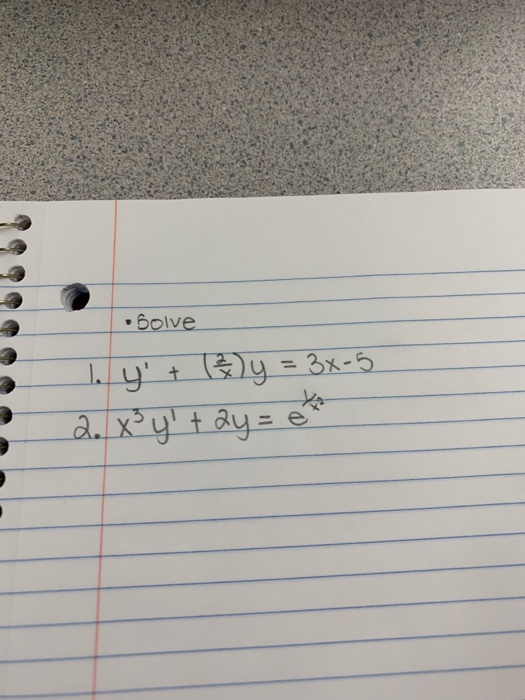 • Solve
1. y' + (2/x)y = 3x-5
2. x³y' + 2y = e^(1/x²)